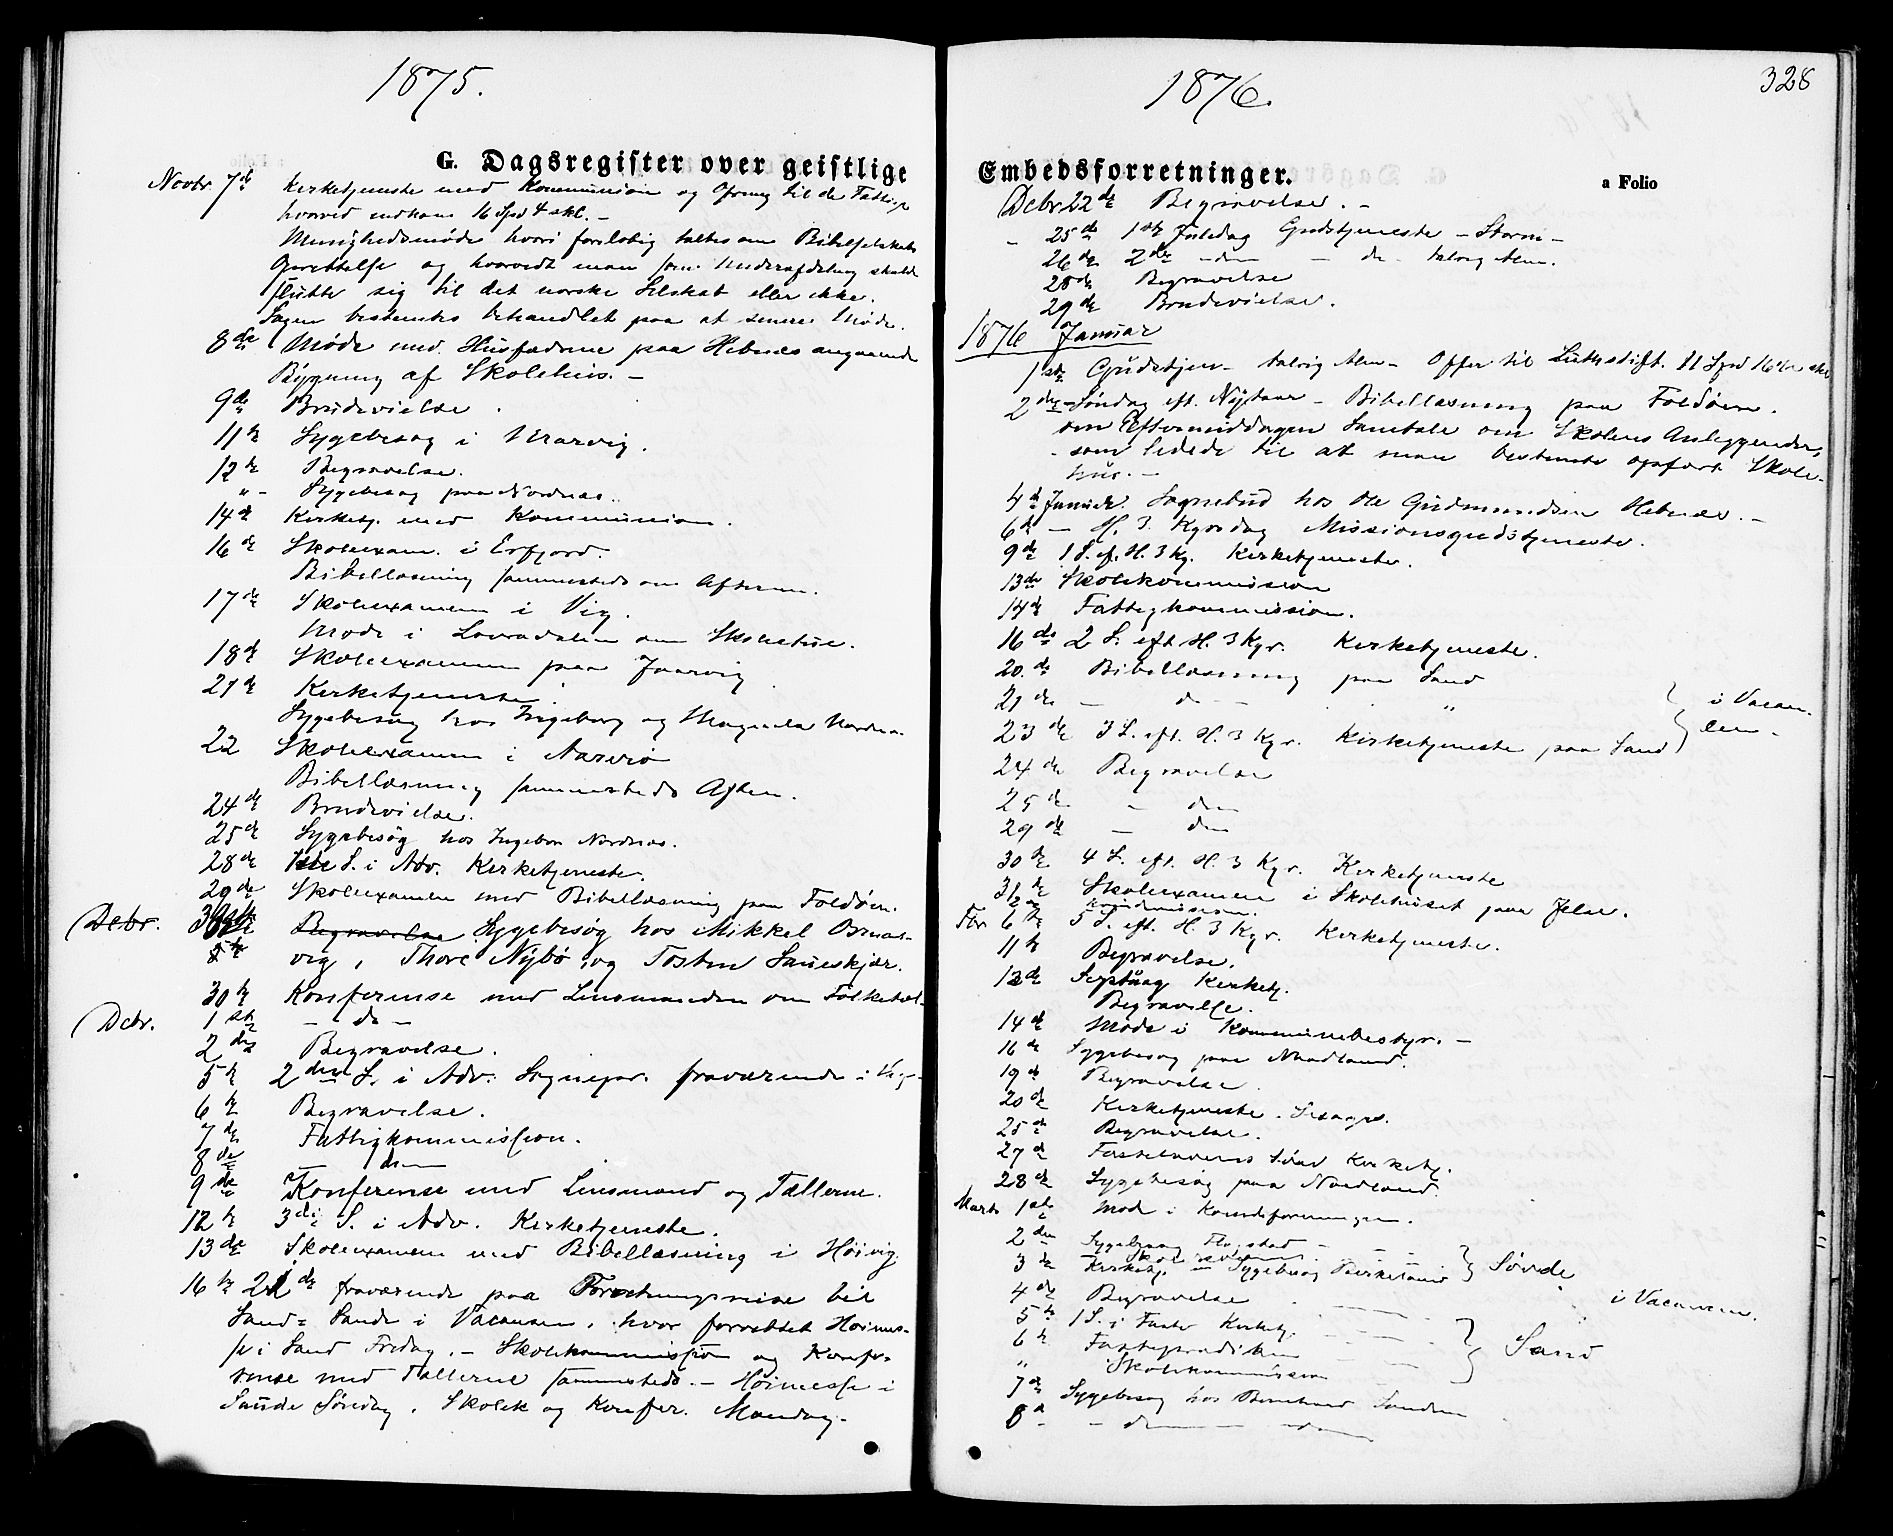 1875.
G. Dagsregister over geistlige
Novbr 7de Kirketjeneste med Kommunion og Ofring til de Fattige
hvorved indkom 16 Spd 4 skl. -
Menighedsmøde hvori foreløbig taltes om Bibelselskabs
Oprettelse og hvorvidt man som Underafdeling skulde
slutte sig til det norske Selskab eller ikke.
Sagen bestemtes behandlet paa et senere Møde.
8de Møde med Husfædrene paa Hebnes angaaende
Bygning af Skolehus. -
9de Brudevielse.
11te Sygebesøg i Marvig.
12te Begravelse.
" - Sygebesøg paa Nordnæs.
14de Kirketj. med Kommunion.
16de Skoleexam. i Erfjord.
Bibellæsning sammesteds om Aftenen.
17de Skoleexamen i Vig.
Møde i Lovradalen om Skolehus.
18de Skoleexamen paa Jaarvig
21de Kirketjeneste.
Sygebesøg hos Ingeborg og
22 Skoleexamen i
Bibellæsning sammesteds Aften.
24de Brudevielse.
25de Sygebesøg hos Ingebor Nordnæs.
28de 1ste S. i Adv. Kirketjeneste.
29de Skoleexamen med Bibellæsning paa Foldøen.
Debr. Begravelse Sygebesøg hos Mikkel
vig, Thore Nybø og Tosten Saueskjær.
30te Konferense med Lensmanden om Folketæl-
Debr. 1ste - do -
2den Begravelse.
5te 2den S. i Adv. Sognepr. fraværende i
6te Begravelse.
7de Fattigkommission.
8de - dem
9de Konferense med Lensmand og Tællerne.
12te 3die S. i Adv. Kirketjeneste.
13de Skoleexamen med Bibellæsning i Høivig
16te 21de fraværende paa Forretningsreise til
Sand = Sande i Vacansen, hvor forrettet Høimes-
se i Sand Fredag. - Skolekommission og Konfe-
rense med Tællerne sammesteds. - Høimesse i
Saude Søndag, Skolek og Konfer. Mandag. -
1876.
328
Embedsforretninger.
a Folio
Debr 22de Begravelse. -
- 25de 1ste Juledag Gudstjeneste - Storm -
26de 2den - dem - do - talrig Alm.
28de Begravelse
29de Brudevielse.
1876 Januar
1ste Gudstjen - talrig Alm - Offer til Lutherstift. 11 Spd
2den Søndag eft. Nytaar - Bibellæsning paa Foldøen.
om Eftermiddagen Samtale om Skolens Anliggender,
som ledede til at man bestemte opført Skole-
hus. -
4de Januar. Sognebud hos Ole Gudmundsen Hebnes. -
6te - H. 3 Kgrsdag Missionsgudstjeneste.
9de 1 S. ef. H. 3 Kg. Kirketjeneste.
13de Skolekommission
14de Fattigkommission.
16de 2 S. eft H. 3 Kgr. Kirketjeneste.
20de Bibellæsning paa Sand
21de - do - - "
i Vacan-
sen -
23de 3 S. eft. H. 3 Kgr. Kirketjeneste paa Sand
24de Begravelse
25de - dem
29de - dem
30te 4 S. eft. H. 3 Kgr. Kirketjeneste
31te Skoleexamen i Skolehuset paa Jelse.
Fbr 6te 5 S. eft. H. 3 Kgr. Kirketjeneste.
11te Begravelse.
13de Kirketj.
Begravelse.
14de Møde i Kommunebestyr. -
16de Sygebesøg paa Nordland.
19de Begravelse.
20de Kirketjeneste. Sexages.
25de Begravelse.
27de Fastelavens Sønd Kirketj.
28de Sygebesøg paa Nordland.
Marts 1ste Møde i
2den Sygebesøg
Skoleexamen
3de Kirketj. Sygebesøg Birkeland
Søvde
4de Begravelse
i Vacansen.
5te 1 S. i Faste Kirketj.
6te Fasteprædiken
Sand
" Skolekommission
7de Sygebesøg hos
8de - dem